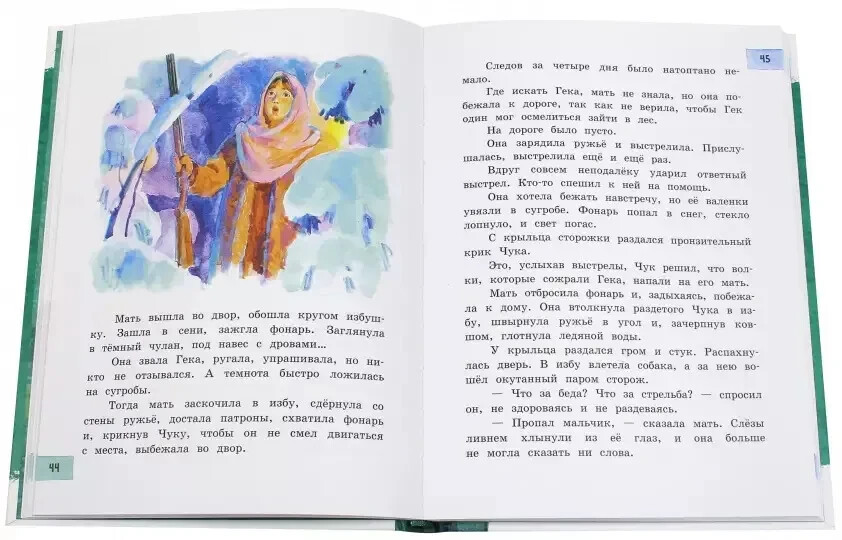 Мать вышла во двор, обошла кругом избуш-
ку. Зашла в сени, зажгла фонарь. Заглянула
в тёмный чулан, под навес с дровами...
Она звала Гека, ругала, упрашивала, но ни-
кто не отзывался. А темнота быстро ложилась
на сугробы.
Тогда мать заскочила в избу, сдёрнула со
стены ружьё, достала патроны, схватила фонарь
и, крикнув Чуку, чтобы он не смел двигаться
с места, выбежала во двор.
44
45
Следов за четыре дня было натоптано не-
мало.
Где искать Гека, мать не знала, но она по-
бежала к дороге, так как не верила, чтобы Гек
один мог осмелиться зайти в лес.
На дороге было пусто.
Она зарядила ружьё и выстрелила. Прислу-
шалась, выстрелила ещё и ещё раз.
Вдруг совсем неподалёку ударил ответный
выстрел. Кто-то спешил к ней на помощь.
Она хотела бежать навстречу, но её валенки
увязли в сугробе. Фонарь попал в снег, стекло
лопнуло, и свет погас.
С крыльца сторожки раздался пронзительный
крик Чука.
Это, услыхав выстрелы, Чук решил, что вол-
ки, которые сожрали Гека, напали на его мать.
Мать отбросила фонарь и, задыхаясь, побежа-
ла к дому. Она втолкнула раздетого Чука в из-
бу, швырнула ружьё в угол и, зачерпнув ков-
шом, глотнула ледяной воды.
У крыльца раздался гром и стук. Распахну-
лась дверь. В избу влетела собака, а за нею во-
шёл окутанный паром сторож.
— Что за беда? Что за стрельба? — спросил
он, не здороваясь и не раздеваясь.
— Пропал мальчик, — сказала мать. Слёзы
ливнем хлынули из её глаз, и она больше
не могла сказать ни слова.